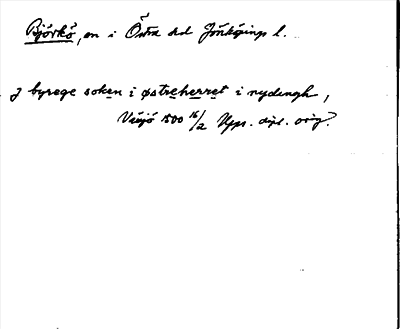 Björkö, sn i Östra hd Jönköpings l.
j byrege soken i østreherret i nydungh,
Växjö 1500 16/2 Upps. dipl. orig.